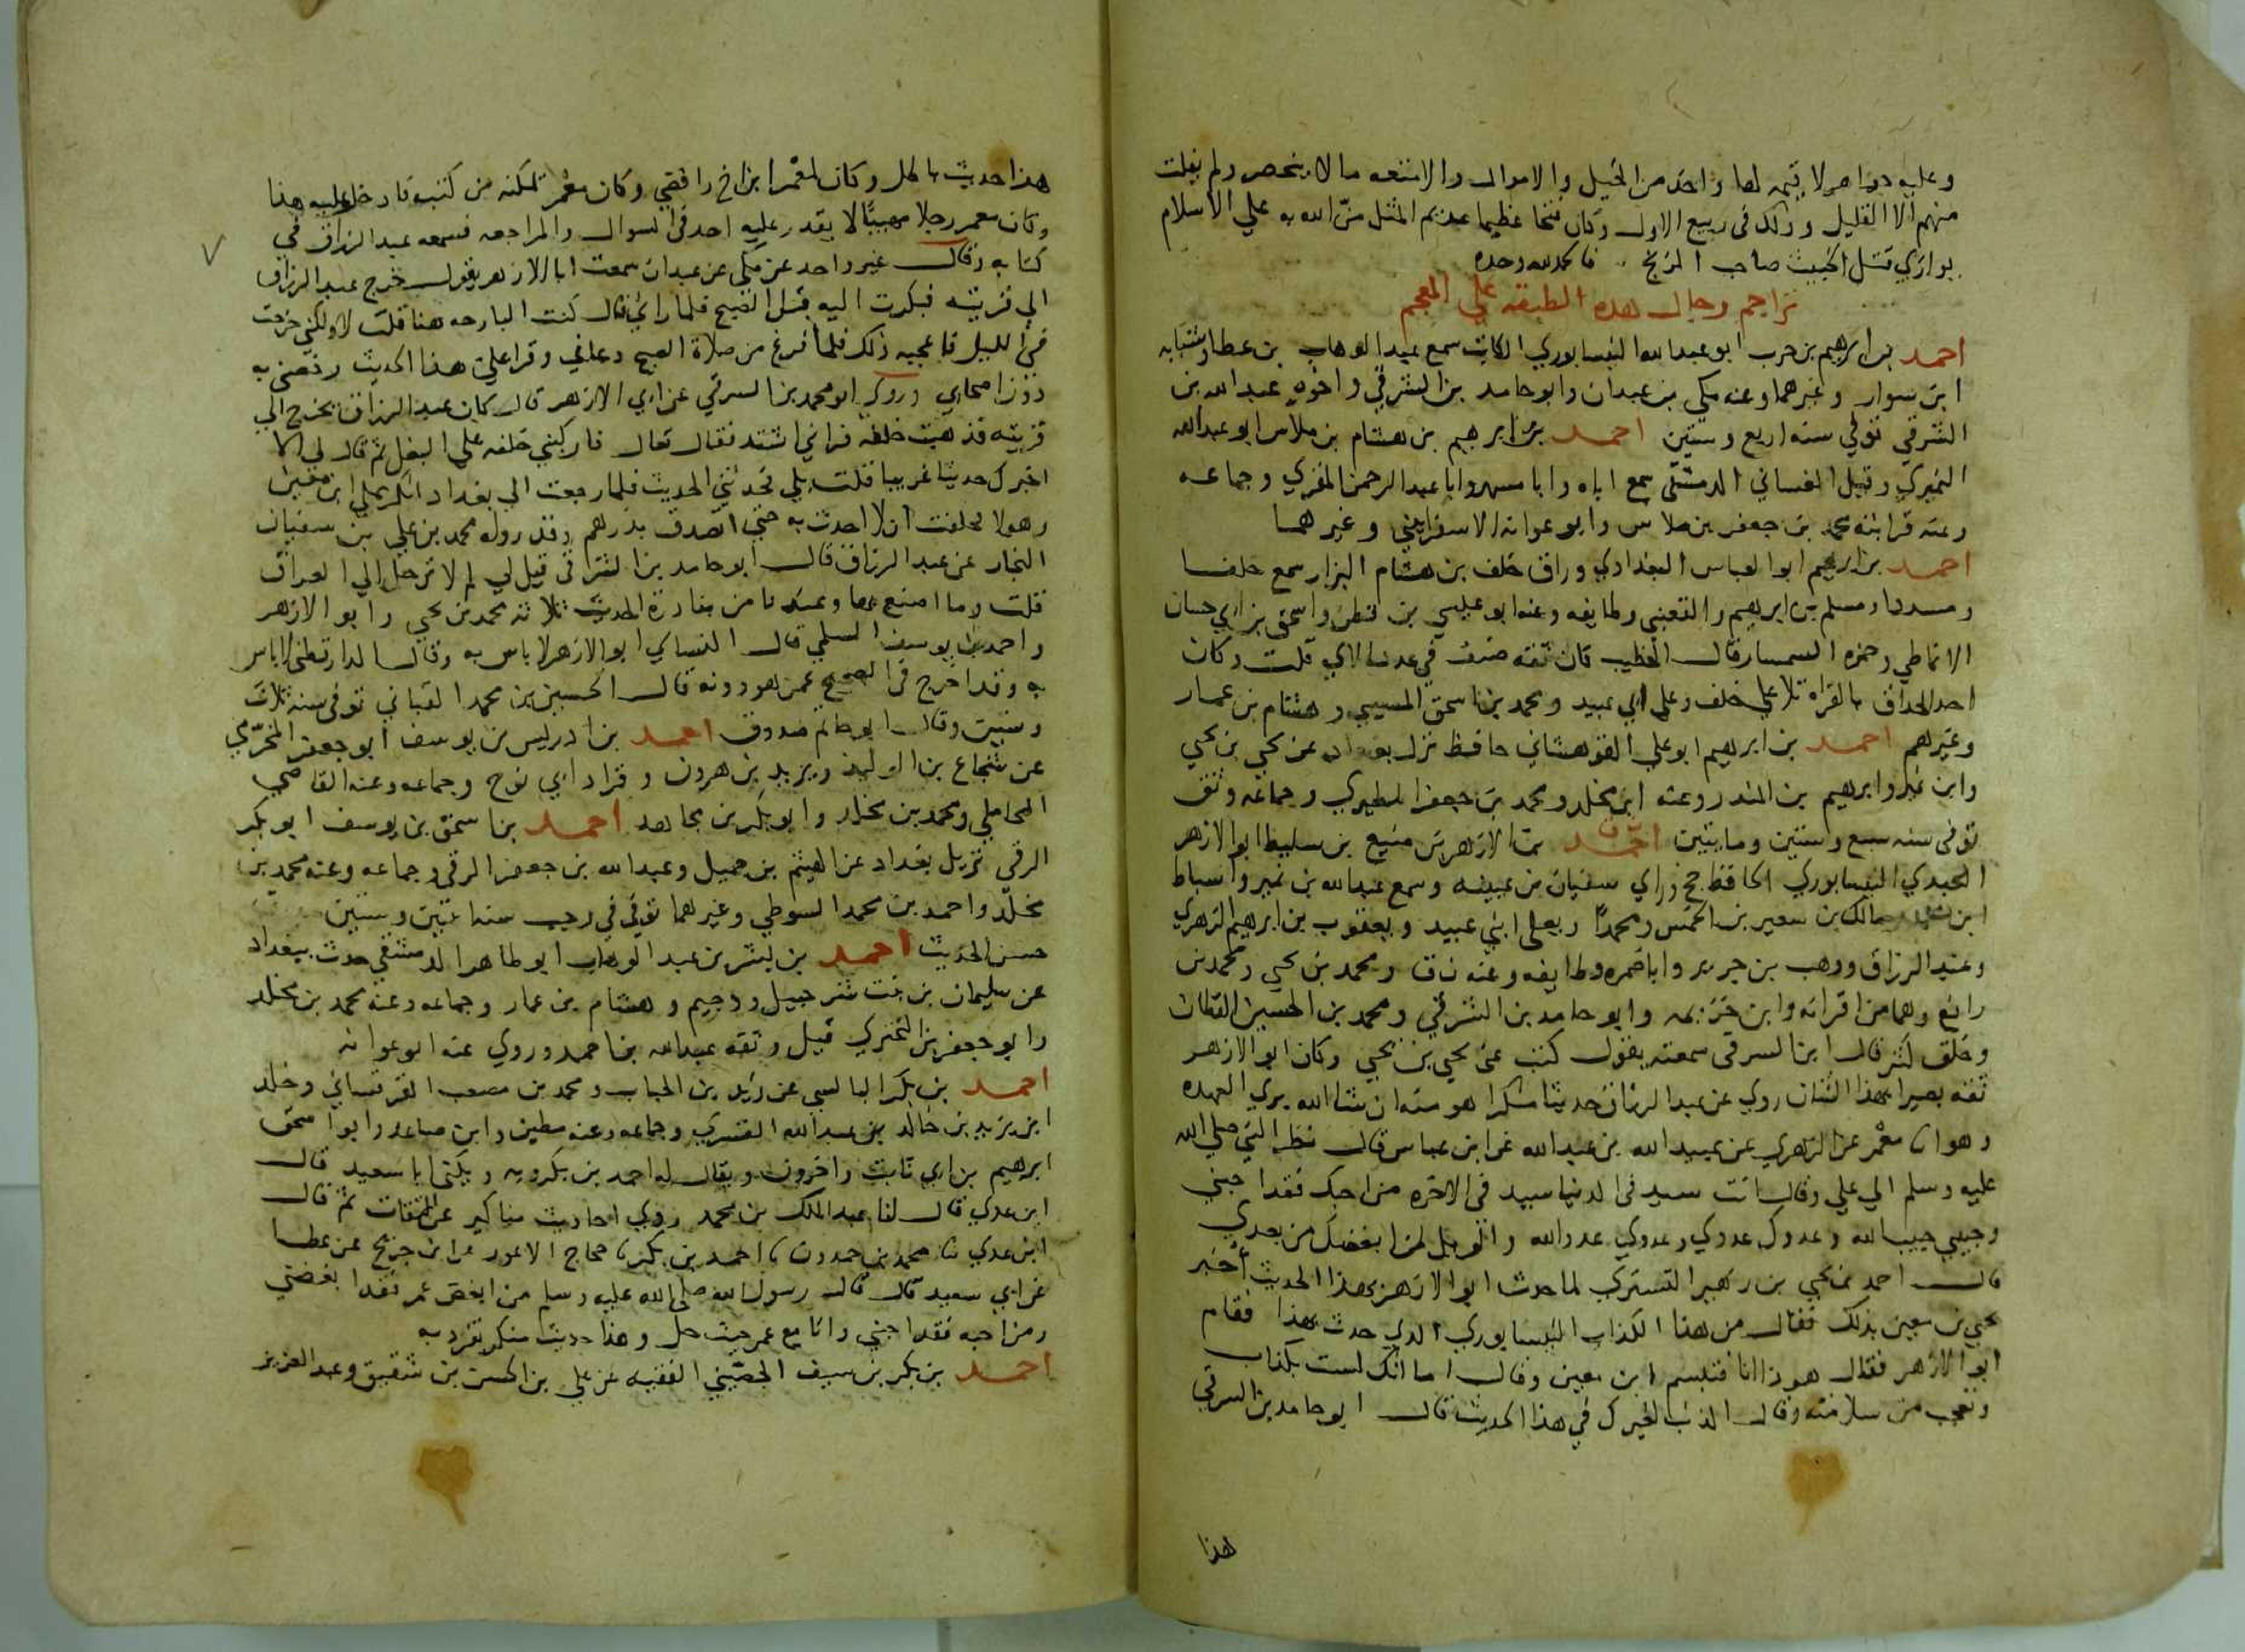 وعليه جواهر لا قيمه لها واخذ من الخيل والاموال والامتعه ما لا ينحصر ولم يفلت
منهم الا القليل وذلك في ربيع الاول وكان فتحا عظيما عديم المثل منّ الله به على الاسلام
يوازي قتل الخبيث صاحب الزنج فالحمد لله وحده
تراجم رجال هذه الطبقه على المعجم
احمد بن ابرهيم بن حرب ابو عبدالله النيسابوري الكاتب سمع عبد الوهاب بن عطا وشبابه
ابن سوار وغيرهما وعنه مكي بن عبدان وابو حامد بن الشرقي واخوه عبدالله بن
الشرقي توفي سنه اربع وستين احمد بن ابرهيم بن هشام بن ملاس ابو عبدالله
النميري وقيل الغساني الدمشقي سمع اباه وابا مسهر وابا عبدالرحمن المقري وجماعه
وعنه قرابته محمد بن جعفر بن ملاس وابو عوانه الاسفرايني وغيرهما
احمد بن ابرهيم ابو العباس البغدادي وراق خلف بن هشام البزار سمع خلفا
ومسددا ومسلم بن ابرهيم والقعنبي وطايفه وعنه ابو عيسي بن قطن واسحق بن ابي حسان
الانماطي وحمزه السمسار قال الخطيب كان ثقه صنف في عدد الاي قلت وكان
احد الحذاق بالقراه تلا علي خلف وعلى ابي عبيد ومحمد بن اسحق المسيبي وهشام بن عمار
وغيرهم احمد بن ابرهيم ابو علي القوهستاني حافظ نزل بغداد عن يحيي بن يحيي
وابن نمير وابرهيم بن المنذر وعنه ابن مخلد ومحمد بن جعفر المطيري وجماعه وثق
توفي سنه سبع وستين ومايتين احمد بن الازهر بن منيع بن سليط ابو الازهر
العبدي النيسابوري الحافظ حج وراي سفيان بن عيينه وسمع عبدالله بن نمير واسباط
ابن محمد ومالك بن سعير بن الخمس ومحمدًا ويعلى ابني عبيد ويعقوب بن ابرهيم الزهري
وعبد الرزاق ووهب بن جرير وابا ضمره وطايفه وعنه ن ق ومحمد بن يحيي ومحمد بن
رافع وهما من اقرانه وابن خزيمه وابو حامد بن الشرقي ومحمد بن الحسين القطان
وخلق كثر قال ابن الشرقي سمعته يقول كتب عني يحيي بن يحيي وكان ابو الازهر
ثقه بصيرا بهذا الشان روي عن عبد الرزاق حديثا منكرا هو منه ان شا الله بري العهده
وهو انا معمر عن الزهري عن عبيد الله بن عبد الله عن ابن عباس قال نظر النبي صلى الله
عليه وسلم الي علي وقال انت سيد في الدنيا سيد في الاخره من احبك فقد احبني
وحبيبي حبيب الله وعدوك عدوي وعدوي عدو الله والويل لمن ابغضك من بعدي
قال احمد بن يحيي بن زهير التستري لما حدث ابو الازهر بهذا الحديث أخبر
يحيي بن معين بذلك فقال من هذا الكذاب النيسابوري الذي حدث بهذا فقام
ابو الازهر فقال هو ذا انا فتبسم ابن معين وقال اما انك لست بكذاب
وتعجب من سلامته وقال الذنب لغيرك في هذا الحديث قال ابو حامد بن الشرقي
هذا
هذا حديث باطل وكان لمعمر ابن اخ رافضي وكان معمر يمكنه من كتبه فادخل عليه هذا
وكان معمر رجلا مهيبًا لا يقدر عليه احد في السوال والمراجعه فسمعه عبد الرزاق في
كتابه وقال غير واحد عن مكي بن عبدان سمعت ابا الازهر يقول خرج عبد الرزاق
الي قريته فبكرت اليه قبل الصبح فلما راني قال كنت البارحه هنا قلت لا ولكني خرجت
في الليل فاعجبه ذلك فلما فرغ من صلاة الصبح دعاني وقرا علي هذا الحديث وخصني به
دون اصحابي وروي ابو محمد بن الشرقي عن ابي الازهر قال كان عبد الرزاق يخرج الي
قريته فذهبت خلفه فراني اشتد فقال تعال فاركبني خلفه على البغل ثم قال لي الا
اخبرك حديثا غريبا قلت بلي فحدثني الحديث فلما رجعت الي بغداد انكر علي ابن معين
وهولا فحلفت ان لا احدث به حتى اتصدق بدرهم وقد رواه محمد بن علي بن سفيان
النجار عن عبد الرزاق قال ابو حامد بن الشرقي قيل لي لم لا ترحل الي العراق
قلت وما اصنع بها وعندنا من بنادرة الحديث ثلاثه محمد بن يحيي وابو الازهر
واحمد بن يوسف السلمي قال النسايي ابو الازهر لا باس به وقال الدارقطني لا باس
به وقد اخرج في الصحيح عمن هو دونه قال الحسين بن محمد القباني توفي سنه ثلاث
وستين وقال ابو حاتم صدوق احمد بن ادريس بن يوسف ابو جعفر المخرمي
عن شجاع بن الوليد ويزيد بن هرون وقراد ابي نوح وجماعه وعنه القاضي
المحاملي ومحمد بن مخلد وابو بكر بن مجاهد احمد بن اسحق بن يوسف ابو بكر
الرقي نزيل بغداد عن الهيثم بن جميل وعبدالله بن جعفر الرقي وجماعه وعنه محمد بن
مخلد واحمد بن محمد السوطي وغيرهما توفي في رجب سنه اثنتين وستين
حسن الحديث احمد بن بشر بن عبد الوهاب ابو طاهر الدمشقي حدث ببغداد
عن سليمان بن بنت شرحبيل ودحيم وهشام بن عمار وجماعه وعنه محمد بن مخلد
وابو جعفر بن البختري قيل وثقه عبدالله بن احمد وروي عنه ابو عوانه
احمد بن بكر البالسي عن زيد بن الحباب ومحمد بن مصعب القرقساني وخلد
ابن يزيد بن خالد بن عبدالله القسري وجماعه وعنه مطين وابن صاعد وابو اسحق
ابرهيم بن ابي ثابت واخرون ويقال له احمد بن بكرويه ويكنى ابا سعيد قال
ابن عدي قال لنا عبد الملك بن محمد روي احاديث مناكير عن الثقات ثم قال
ابن عدي ثنا محمد بن حمدون ثنا احمد بن بكر ثنا حجاج الاعور عن ابن جريج عن عطا
عن ابي سعيد قال قال رسول الله صلى الله عليه وسلم من ابغض عمر فقد ابغضني
ومن احبه فقد احبني وانا مع عمر حيث حل وهذا حديث منكر تفرد به
احمد بن بكر بن سيف الجصيني الفقيه عن علي بن الحسن بن شقيق وعبد العزيز